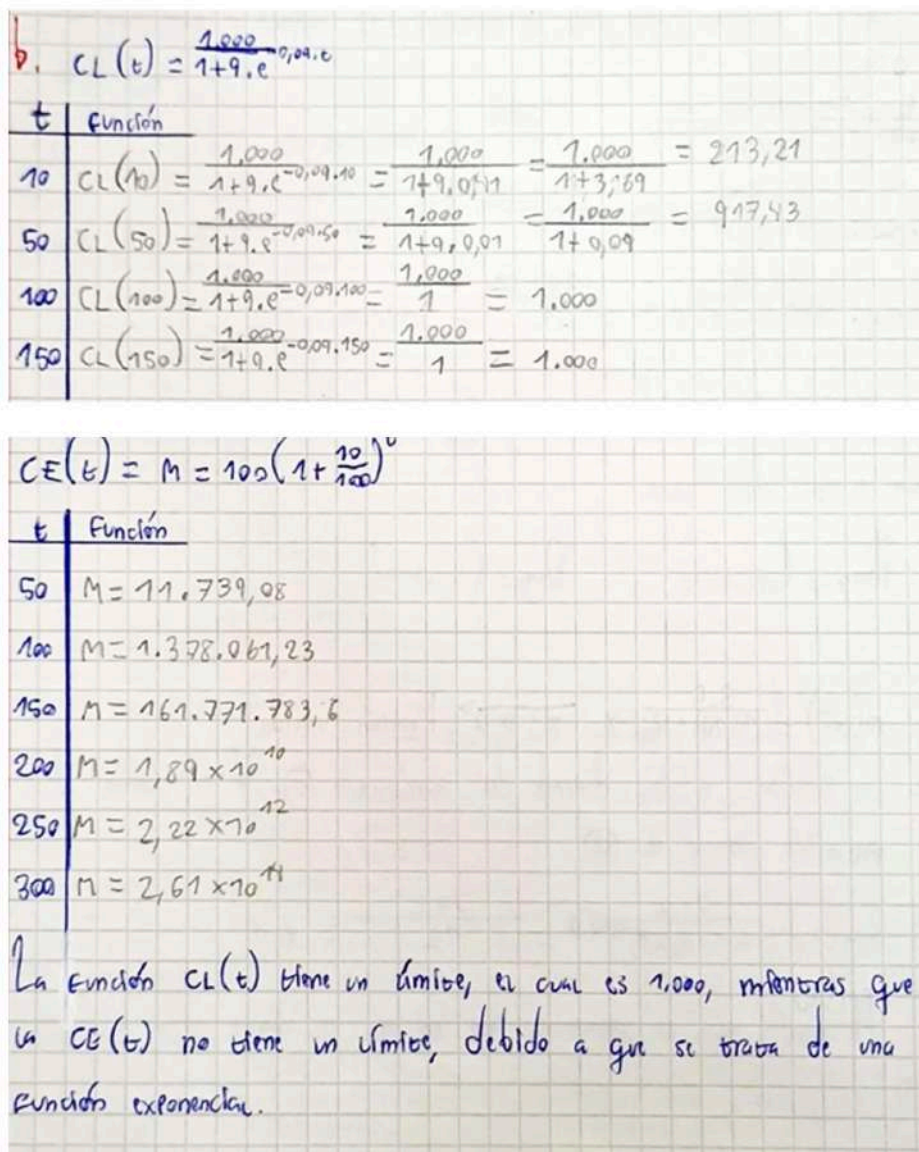 b. CL(t) = 1.000 / 1+9.e^-0,09.t
t | Función
10 | CL(10) = 1.000 / 1+9.e^-0,09.10 = 1.000 / 1+9.0,41 = 1.000 / 1+3,69 = 213,21
50 | CL(50) = 1.000 / 1+9.e^-0,09.50 = 1.000 / 1+9.0,01 = 1.000 / 1+0,09 = 917,43
100 | CL(100) = 1.000 / 1+9.e^-0,09.100 = 1.000 / 1 = 1.000
150 | CL(150) = 1.000 / 1+9.e^-0,09.150 = 1.000 / 1 = 1.000
CE(t) = M = 100(1 + 10/100)^t
t | Función
50 | M = 11.739,08
100 | M = 1.378.061,23
150 | M = 161.771.783,6
200 | M = 1,89 x 10^10
250 | M = 2,22 x 10^12
300 | M = 2,61 x 10^14
La función CL(t) tiene un límite, el cual es 1.000, mientras que
la CE(t) no tiene un límite, debido a que se trata de una
función exponencial.